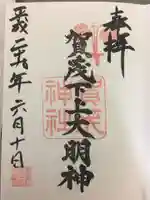 奉拝
賀茂下上大明神
賀茂神社
平成二九年六月十日